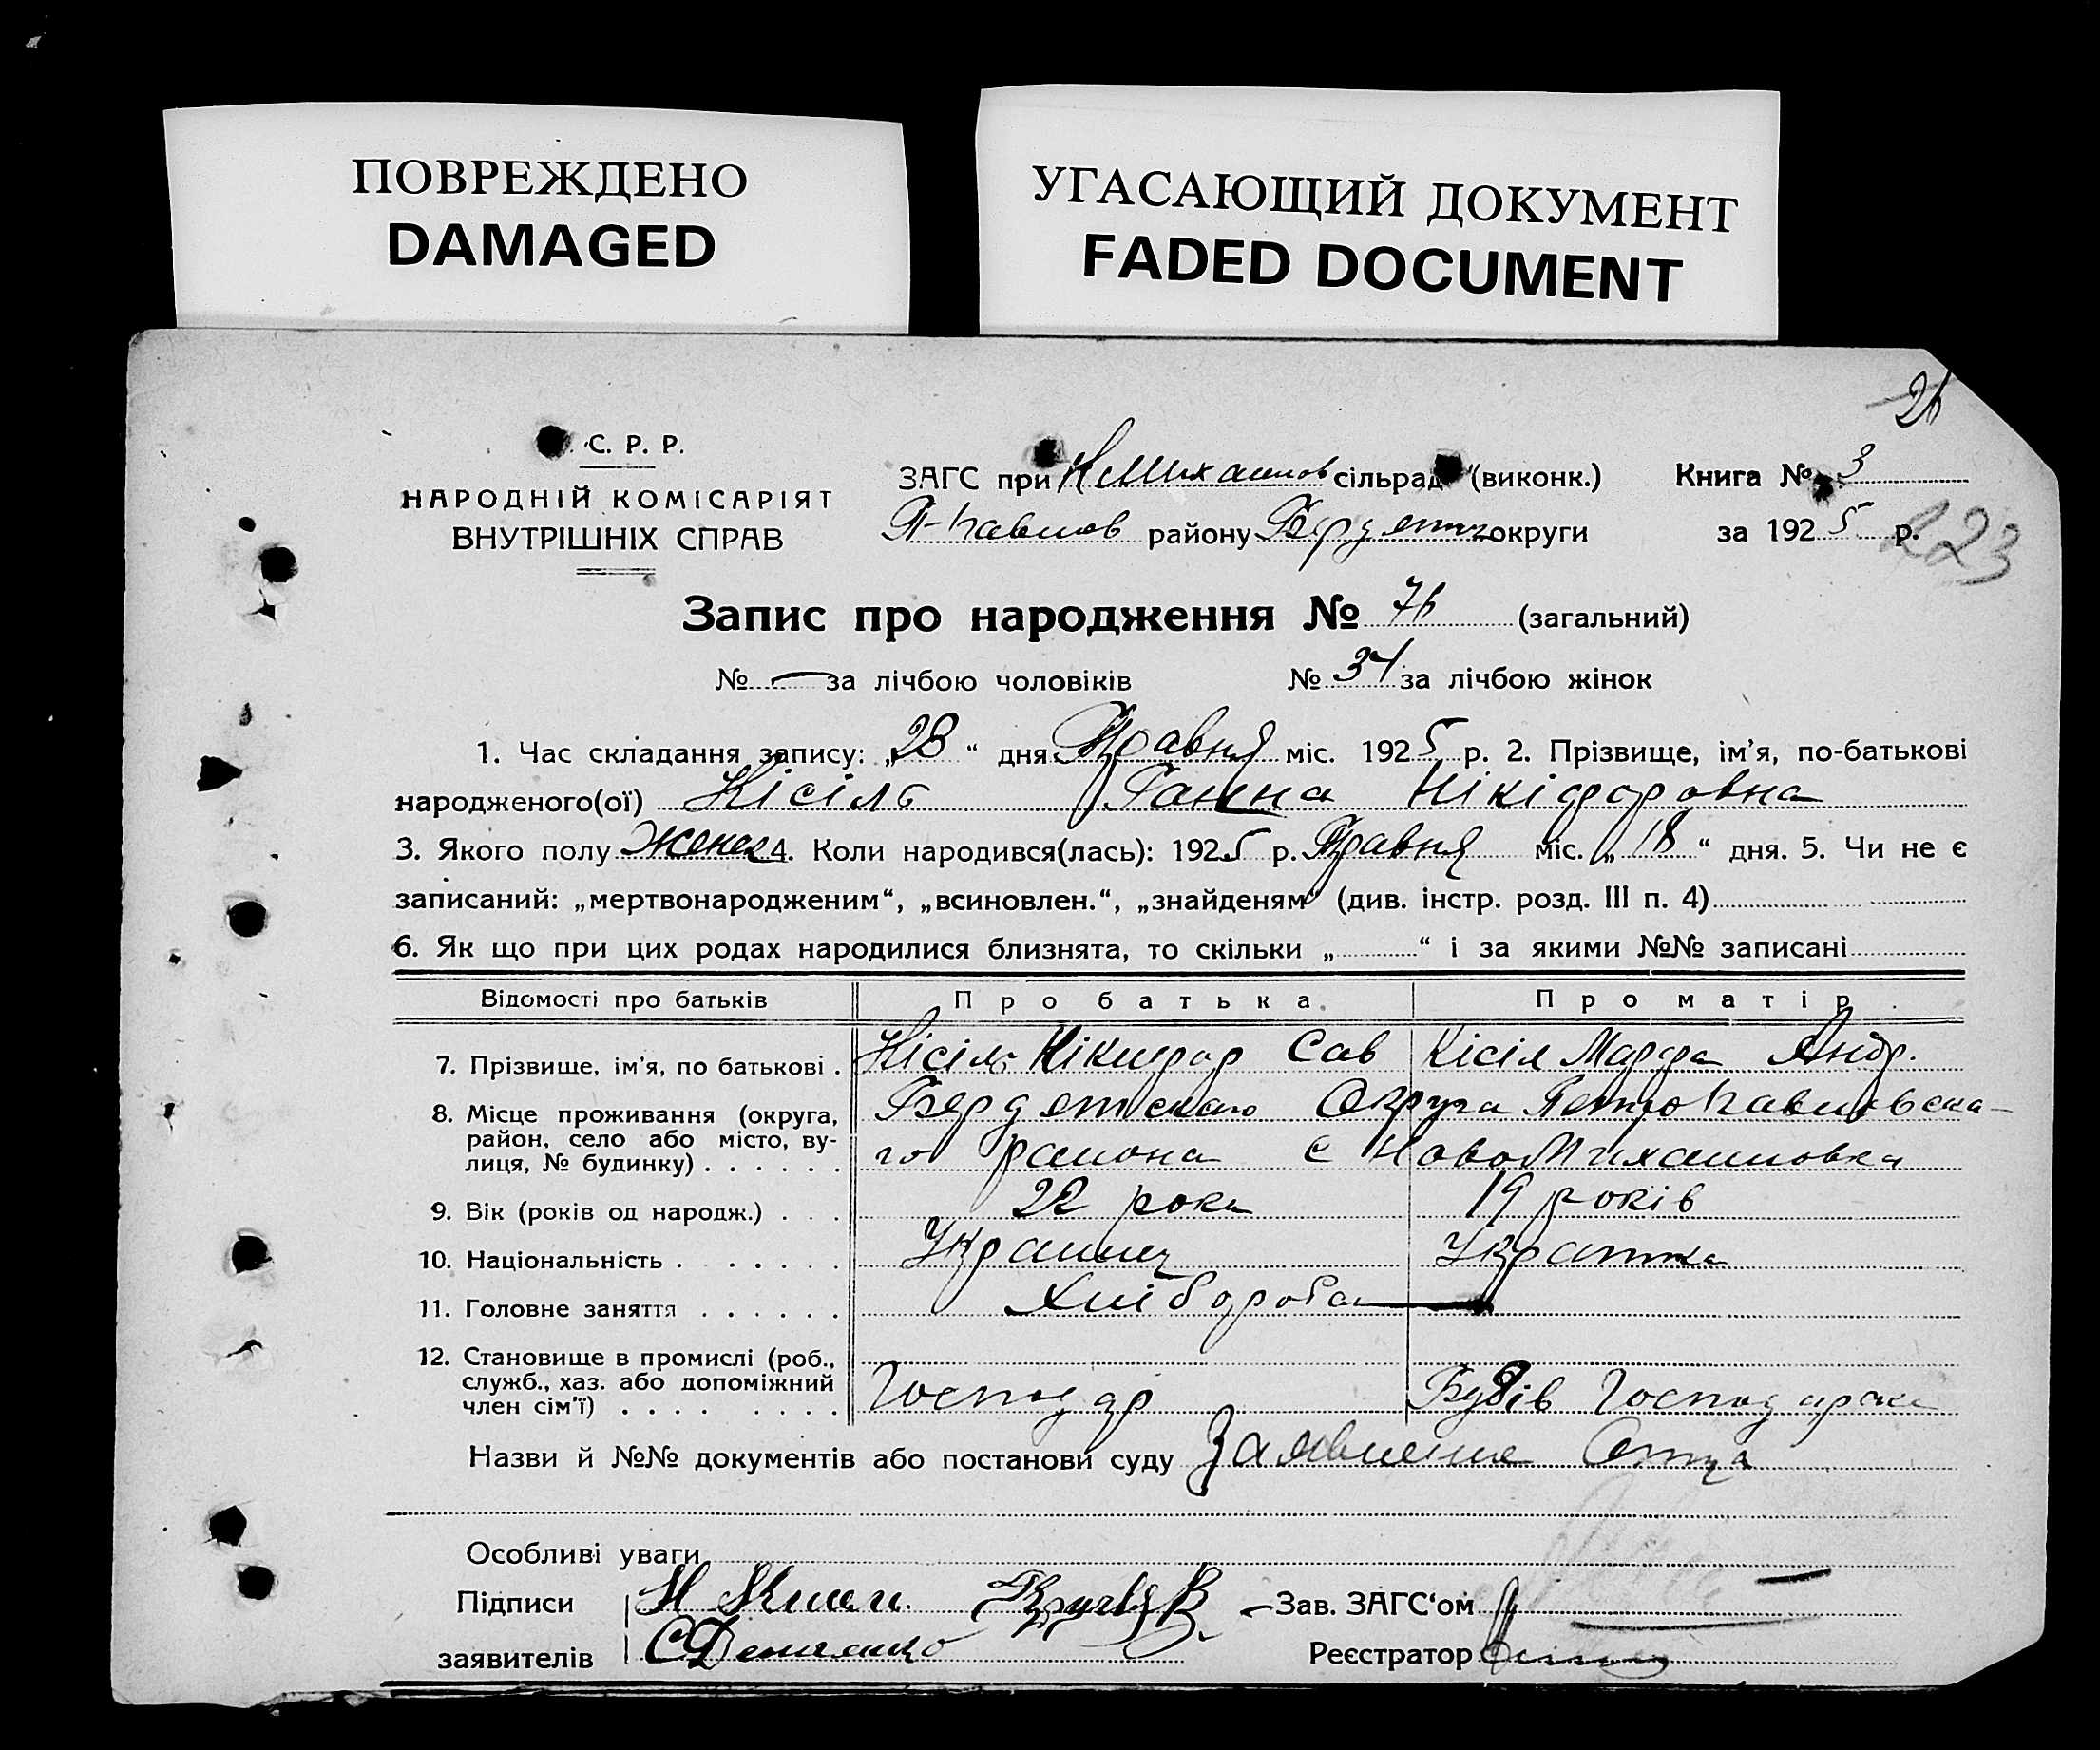 ПОВРЕЖДЕНО
DAMAGED
УГАСАЮЩИЙ ДОКУМЕНТ
FADED DOCUMENT
26
С. Р. Р.
НАРОДНІЙ КОМІСАРІЯТ
ВНУТРІШНІХ СПРАВ
ЗАГС при НМихайлов сільрад (виконк.)
П-Павлов району Бердянск округи
Книга № 3
за 1925 р.
223
Запис про народження № 76 (загальний)
№ — за лічбою чоловіків № 34 за лічбою жінок
1. Час складання запису: „28“ дня Травня міс. 1925 р. 2. Прізвище, ім'я, по-батькові
народженого(ої) Кісіль Ганна Нікіфоровна
3. Якого полу Женск 4. Коли народився(лась): 1925 р. Травня міс. „18“ дня. 5. Чи не є
записаний: „мертвонародженим“, „всиновлен.“, „знайденям“ (див. інстр. розд. III п. 4)
6. Як що при цих родах народилися близнята, то скільки „ “ і за якими №№ записані
Відомості про батьків Про батька. Про матір.
7. Прізвише, ім'я, по батькові . Кісіль Нікифор Сав Кісіл Марфа Андр.
8. Місце проживання (округа,
район, село або місто, ву-
лиця, № будинку) . . . . . .
Бердянскаго Округа Петропавловска-
го района с НовоМихайловка
9. Вік (років од народж.) . . . 22 рока 19 років
10. Національність . . . . . . Украинец Украинка
11. Головне заняття . . . . . . Хлібороба —
12. Становище в промислі (роб.,
служб., хаз. або допоміжний
член сім'ї) . . . . . . . .
Господар Господарка
Назви й №№ документів або постанови суду Заявление Отца
Особливі уваги
Підписи
заявителів
Н Кисель
С Демченко
Зав. ЗАГС'ом
Реєстратор